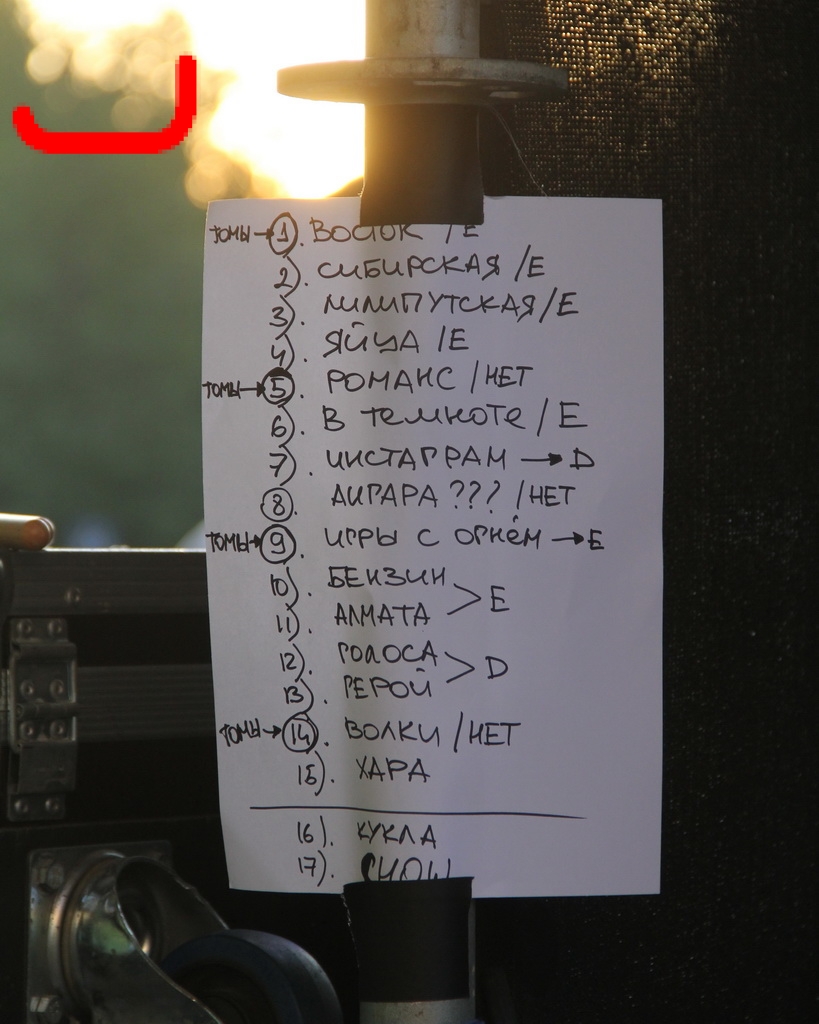 ТОМЫ→ 1. ВОСТОК /Е
2). СИБИРСКАЯ /Е
3). ЛИЛИПУТСКАЯ/Е
4). ЯЙЦА /Е
ТОМЫ→ 5. РОМАНС /НЕТ
6). В ТЕМНОТЕ /Е
7). ИНСТАГРАМ → D
8. АИГАРА ??? /НЕТ
ТОМЫ→ 9. ИГРЫ С ОГНЁМ → Е
10). БЕНЗИН
11). АЛМАТА > Е
12). ГОЛОСА
13). ГЕРОЙ > D
ТОМЫ→ 14. ВОЛКИ /НЕТ
15). ХАРА
16). КУКЛА
17).